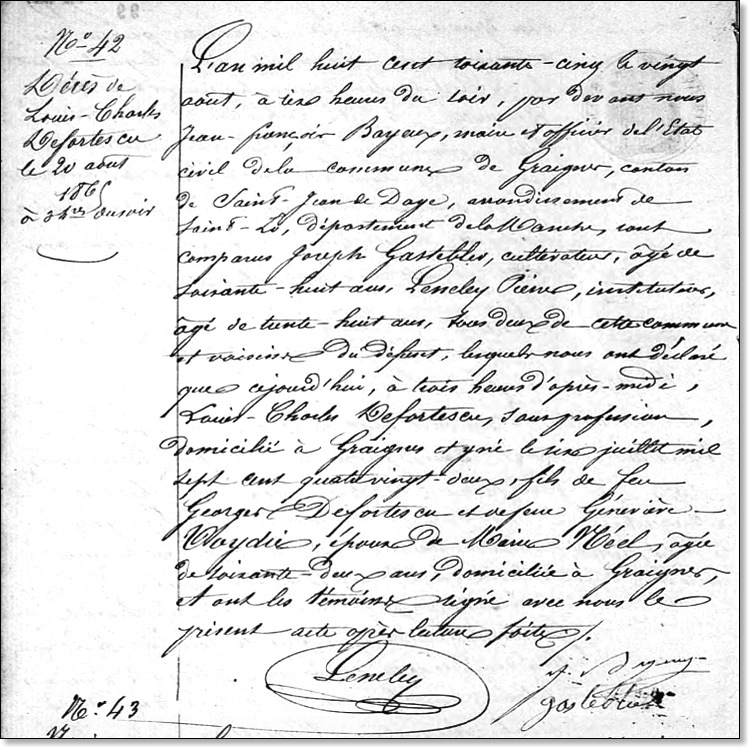 N° 42
Décès de
Louis-Charles
Defortescu
le 20 août
1865
à 3 h.res du soir
L'an mil huit cent soixante-cinq le vingt
août, à six heures du soir, par devant nous
Jean-françois Bayeux, maire et officier de l'Etat
civil de la commune de Graignes, canton
de Saint-Jean de Daye, arrondissement de
Saint-Lô, département de la Manche, sont
comparus Joseph Gastebler, cultivateur, âgé de
soixante-huit ans, Leneley Pierre, instituteur,
âgé de trente-huit ans, tous deux de cette commune
et voisins du défunt, lesquels nous ont déclaré
que cejourd'hui, à trois heures d'après-midi,
Louis-Charles Defortescu, sans profession,
domicilié à Graignes et y né le six juillet mil
sept cent quatre vingt-deux, fils de feu
Georges Defortescu et de feue Géneviève
Voydie, époux de Marie Néel, âgée
de soixante-deux ans, domiciliée à Graignes,
et ont les témoins signé avec nous le
présent acte après lecture faite.
Leneley
N° 43